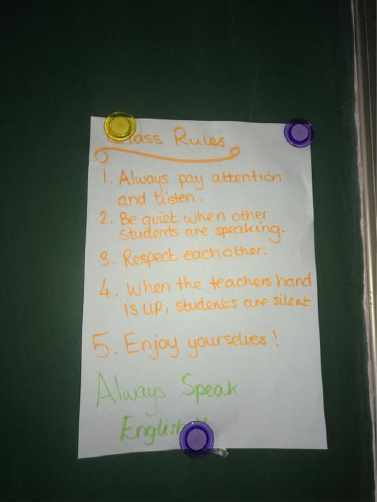 Class Rules
1. Always pay attention
and listen.
2. Be quiet when other
students are speaking.
3. Respect each other.
4. When the teachers hand
is up, students are silent
5. Enjoy yourselves!
Always Speak
English